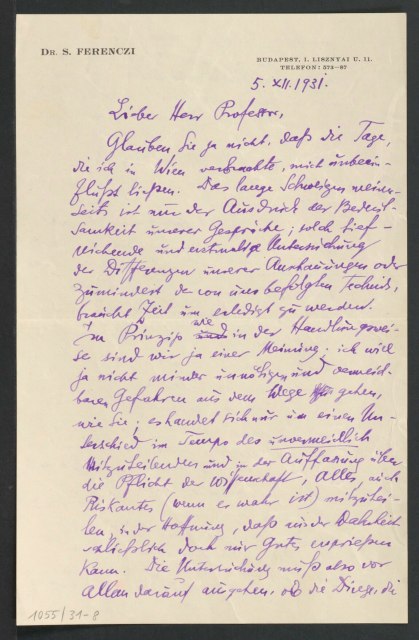 DR. S. FERENCZI
BUDAPEST, I. LISZNYAI U. 11.
TELEFON: 573—87
5. XII. 1931.
Lieber Herr Professor,
Glauben Sie ja nicht, daß die Tage,
die ich in Wien verbrachte, mich unbeein-
flußt ließen. Das lange Schweigen meiner-
seits ist nur der Ausdruck der Bedeut-
samkeit unserer Gespräche; solch tief-
reichende und ernsthafte Untersuchung
der Differenzen unserer Anschauungen oder
zumindest der von uns befolgten Technik,
braucht Zeit um erledigt zu werden.
Im Prinzip wie in der Handlungswei-
se sind wir ja einer Meinung; ich will
ja nicht minder unnötigen und vermeid-
baren Gefahren aus dem Wege gehen,
wie Sie; es handelt sich nur um einen Un-
terschied im Tempo des unvermeidlich
Mitzuteilenden und in der Auffassung über
die Pflicht der Wissenschaft, Alles, auch
Riskantes (wenn es wahr ist) mitzutei-
len, in der Hoffnung, daß aus der Wahrheit
schließlich doch nur Gutes ersprießen
kann. Die Untersuchung muß also vor
Allem darauf ausgehen, ob die Dinge, die
1055/31-8